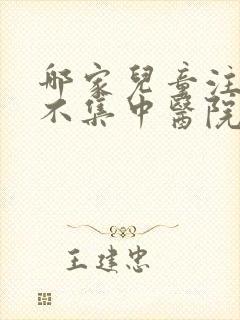 哪家兒童注
不集中醫院
王建忠